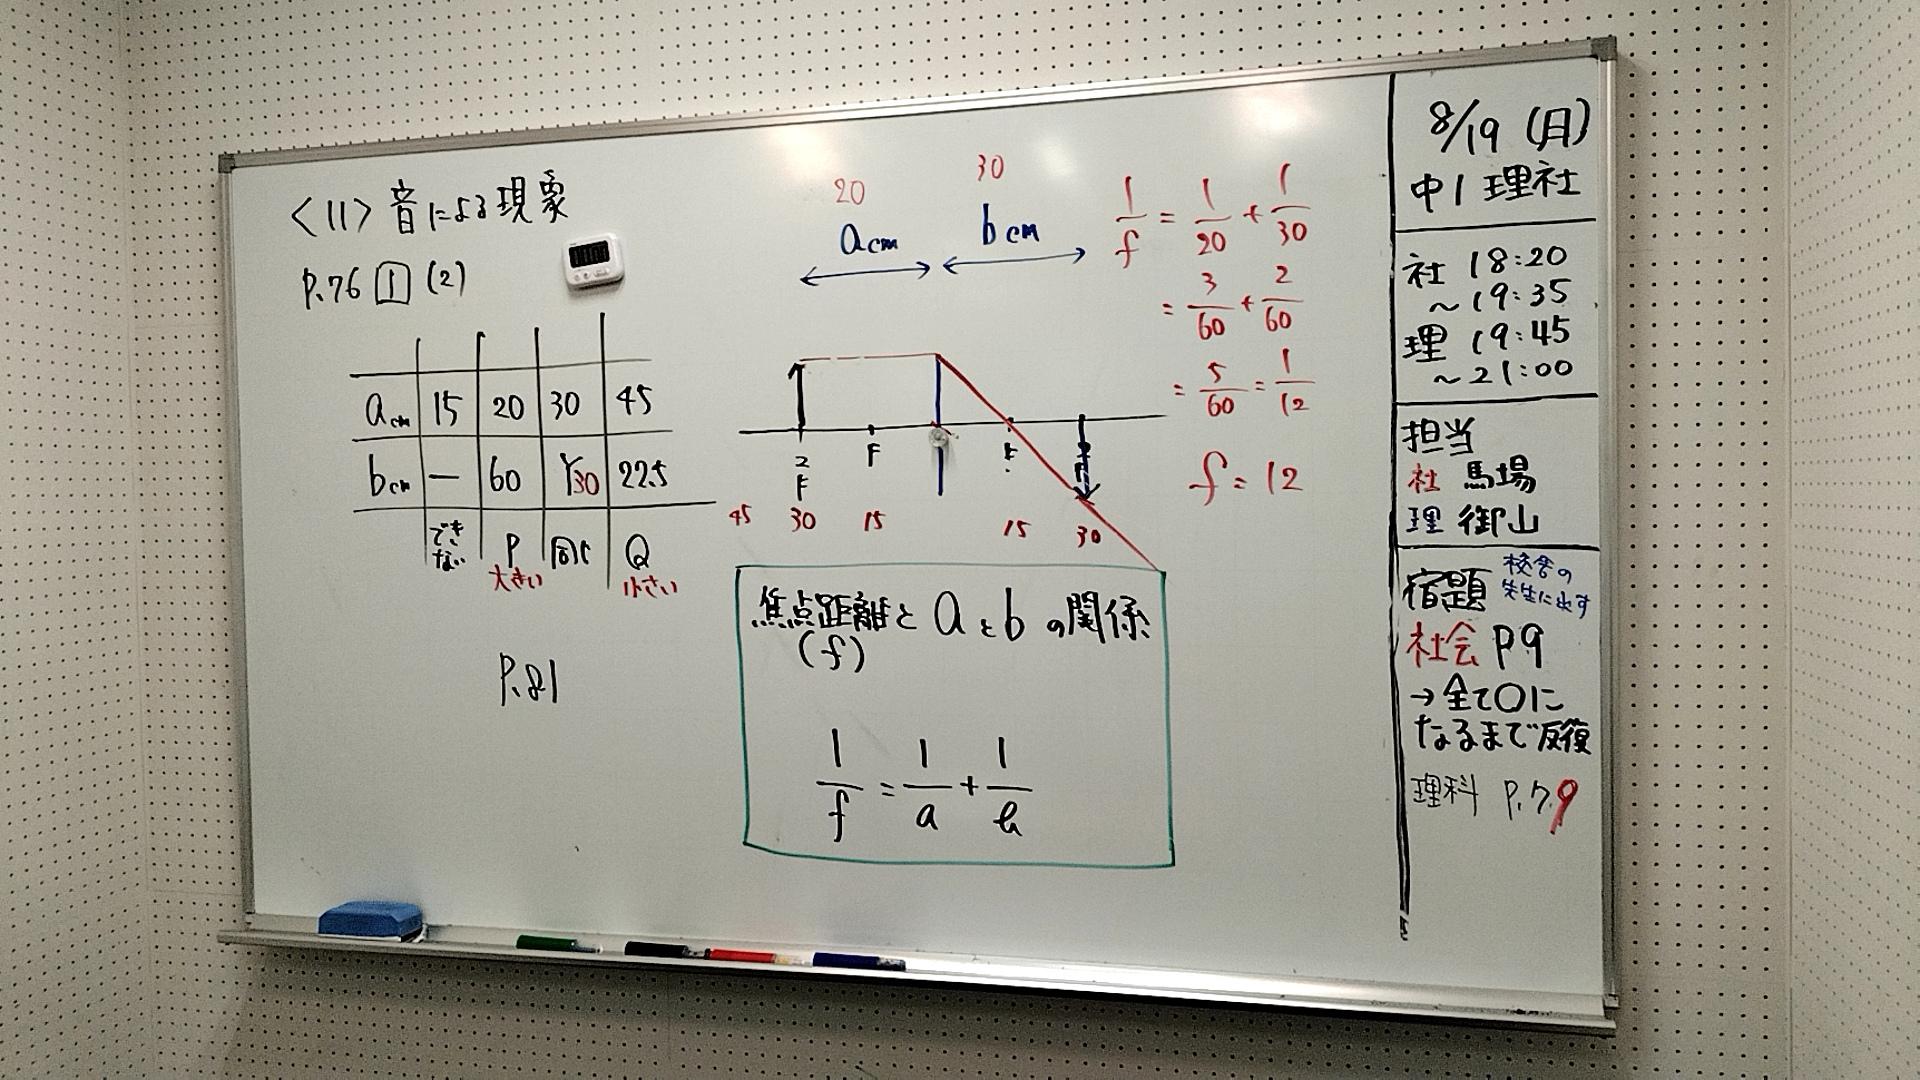 〈11〉音による現象
P.76 1 (2)
acm 15 20 30 45
bcm ― 60 Y30 22.5
できない P 同じ Q
大きい 小さい
P.81
20 30
acm bcm
2F F F
45 30 15 15 30
1/f = 1/20 + 1/30
= 3/60 + 2/60
= 5/60 = 1/12
f = 12
焦点距離とaとbの関係
(f)
1/f = 1/a + 1/b
8/19 (月)
中1 理社
社 18:20
～19:35
理 19:45
～21:00
担当
社 馬場
理 御山
宿題 校舎の
先生に出す
社会 P9
→全て○に
なるまで反復
理科 P.79